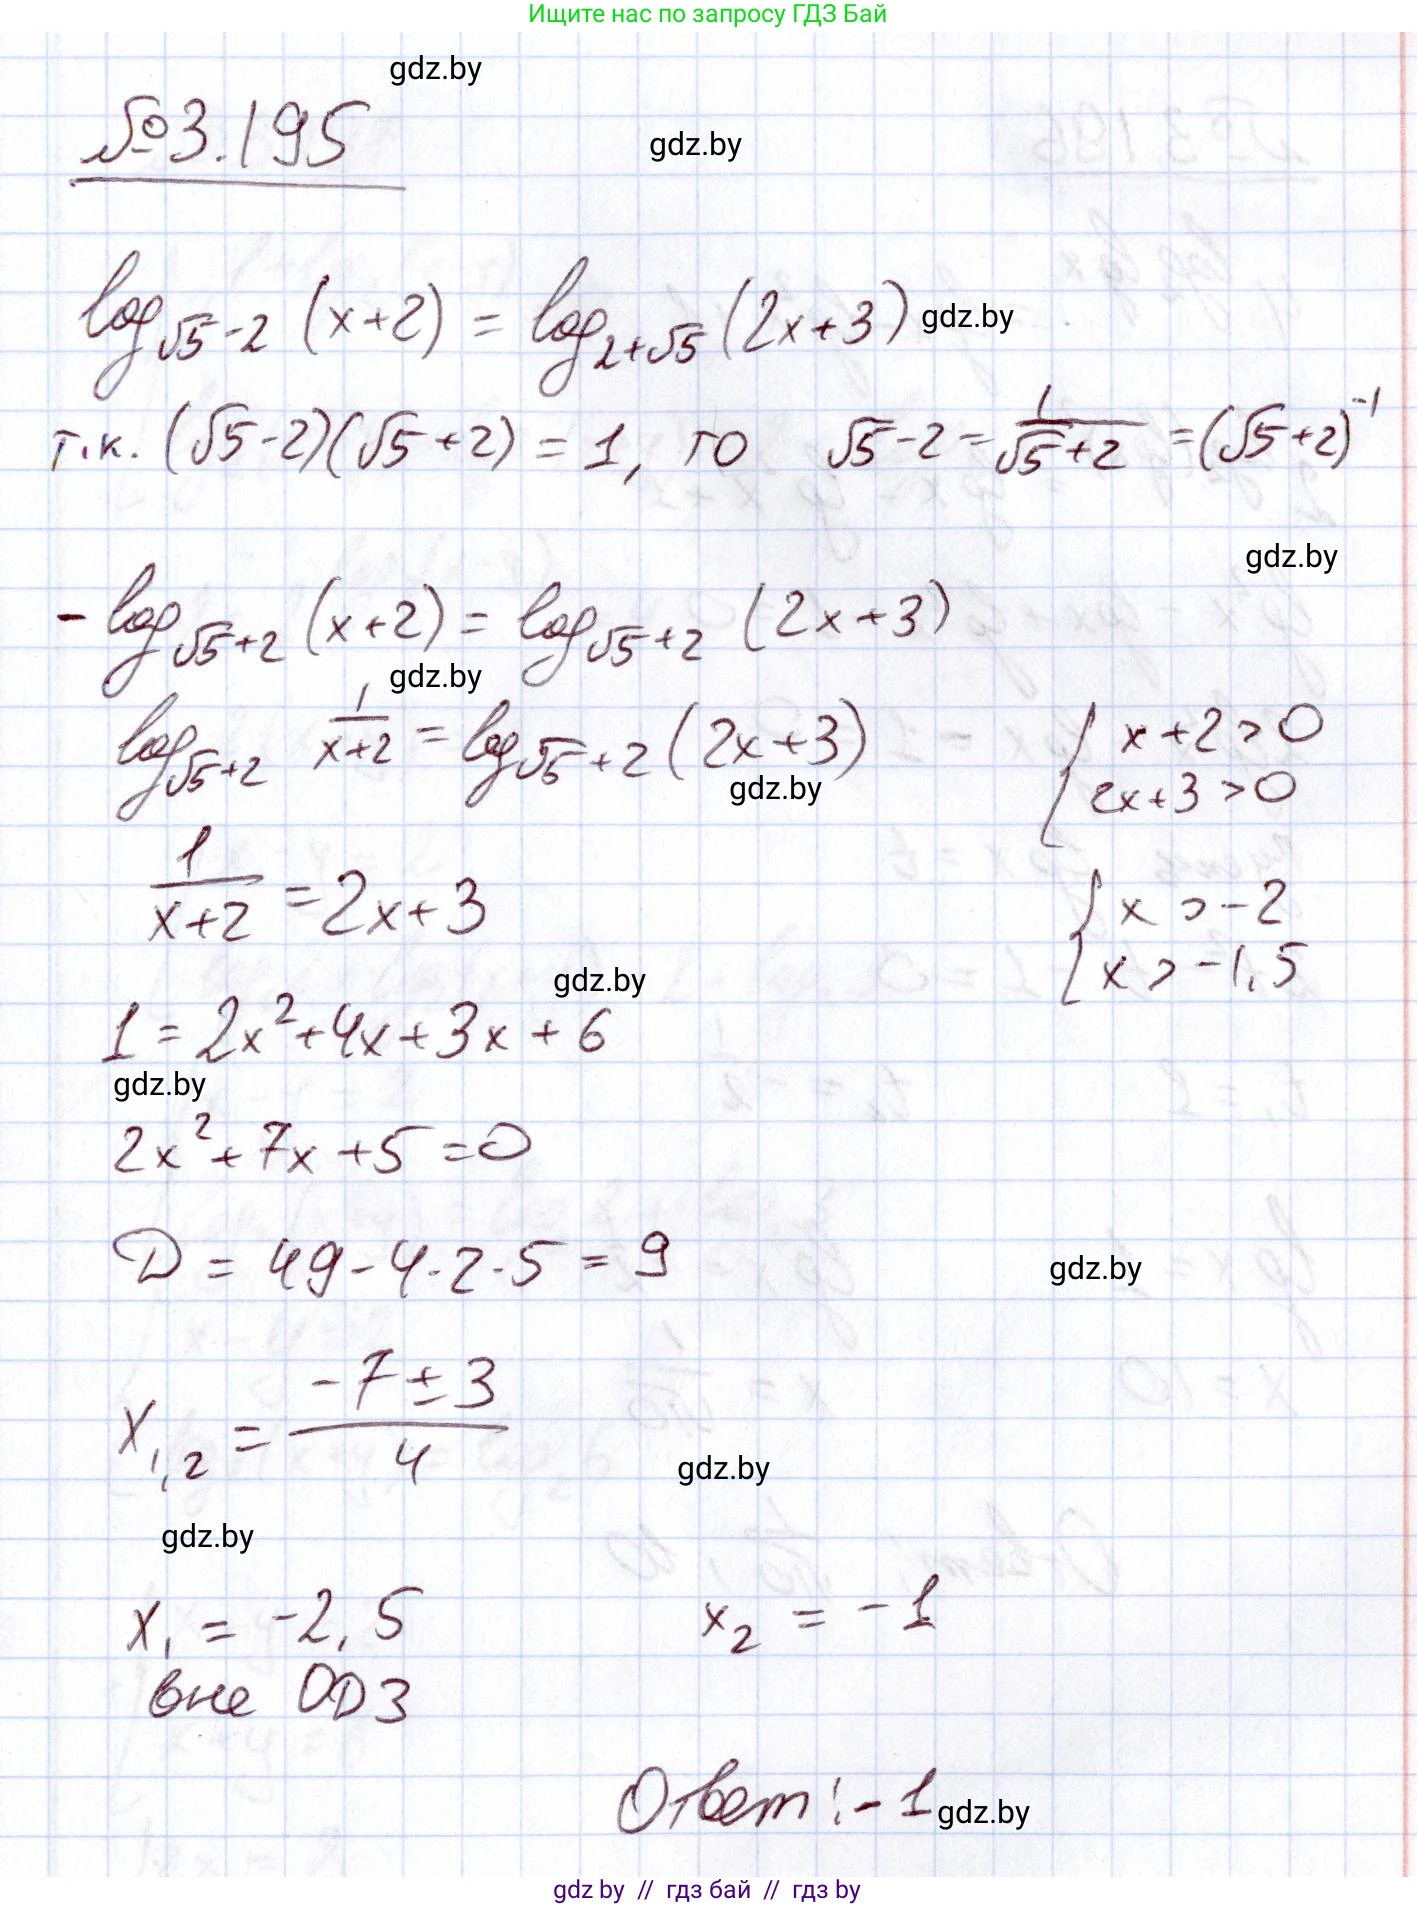 Ищите нас по запросу ГДЗ Бай
gdz.by
№3.195
gdz.by
log_{√5-2} (x+2) = log_{2+√5} (2x+3)
gdz.by
т.к. (√5-2)(√5+2) = 1, то √5-2 = 1/(√5+2) = (√5+2)^{-1}
gdz.by
-log_{√5+2} (x+2) = log_{√5+2} (2x+3)
gdz.by
log_{√5+2} 1/(x+2) = log_{√5+2} (2x+3)
{ x+2>0
2x+3>0
gdz.by
1/(x+2) = 2x+3
{ x > -2
x > -1,5
gdz.by
1 = 2x²+4x+3x+6
gdz.by
2x²+7x+5=0
D = 49-4·2·5 = 9
gdz.by
x_{1,2} = (-7±3)/4
gdz.by
gdz.by
x₁ = -2,5
x₂ = -1
вне ОДЗ
Ответ: -1
gdz.by
gdz by // гдз бай // гдз by